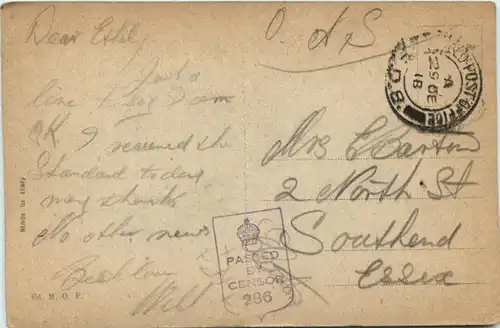 Dear Ethel,
Just a
line to say I am
OK I received the
Standard today
many thanks
No other news
Best love
Will
O. A. S
FIELD POST OFFICE
A
29 DE
18
D.8
Mrs E Barton
2 North St
Southend
Essex
PASSED
BY
CENSOR
286
Made in Italy
Ed. M. G. P.